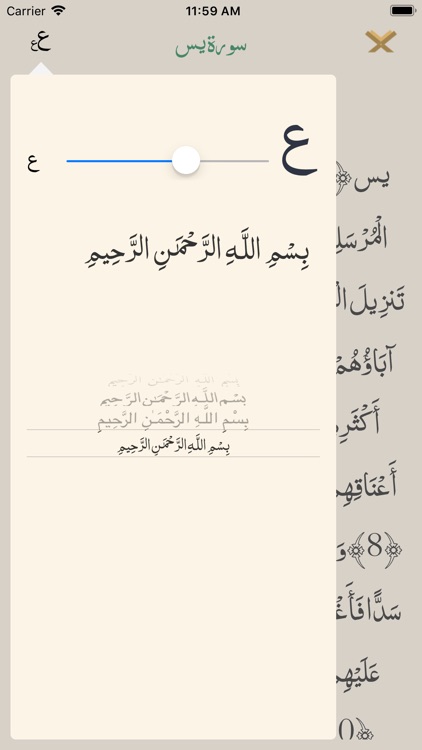 Carrier 11:59 AM
عع سورة يس
ع ع
بِسْمِ اللَّهِ الرَّحْمَنِ الرَّحِيمِ
بسم الله الرحمن الرحيم
بِسْمِ اللَّهِ الرَّحْمَنِ الرَّحِيمِ
بِسْمِ اللَّهِ الرَّحْمَنِ الرَّحِيمِ
بِسْمِ اللَّهِ الرَّحْمَنِ الرَّحِيمِ
يس
الْمُرْسَلِ
تَنزِيلَ الْ
آبَاؤُهُمْ
أَكْثَرِهِ
أَعْنَاقِهِمْ
﴿8﴾ وَ
سَدًّا فَأَغْ
عَلَيْهِمْ
0